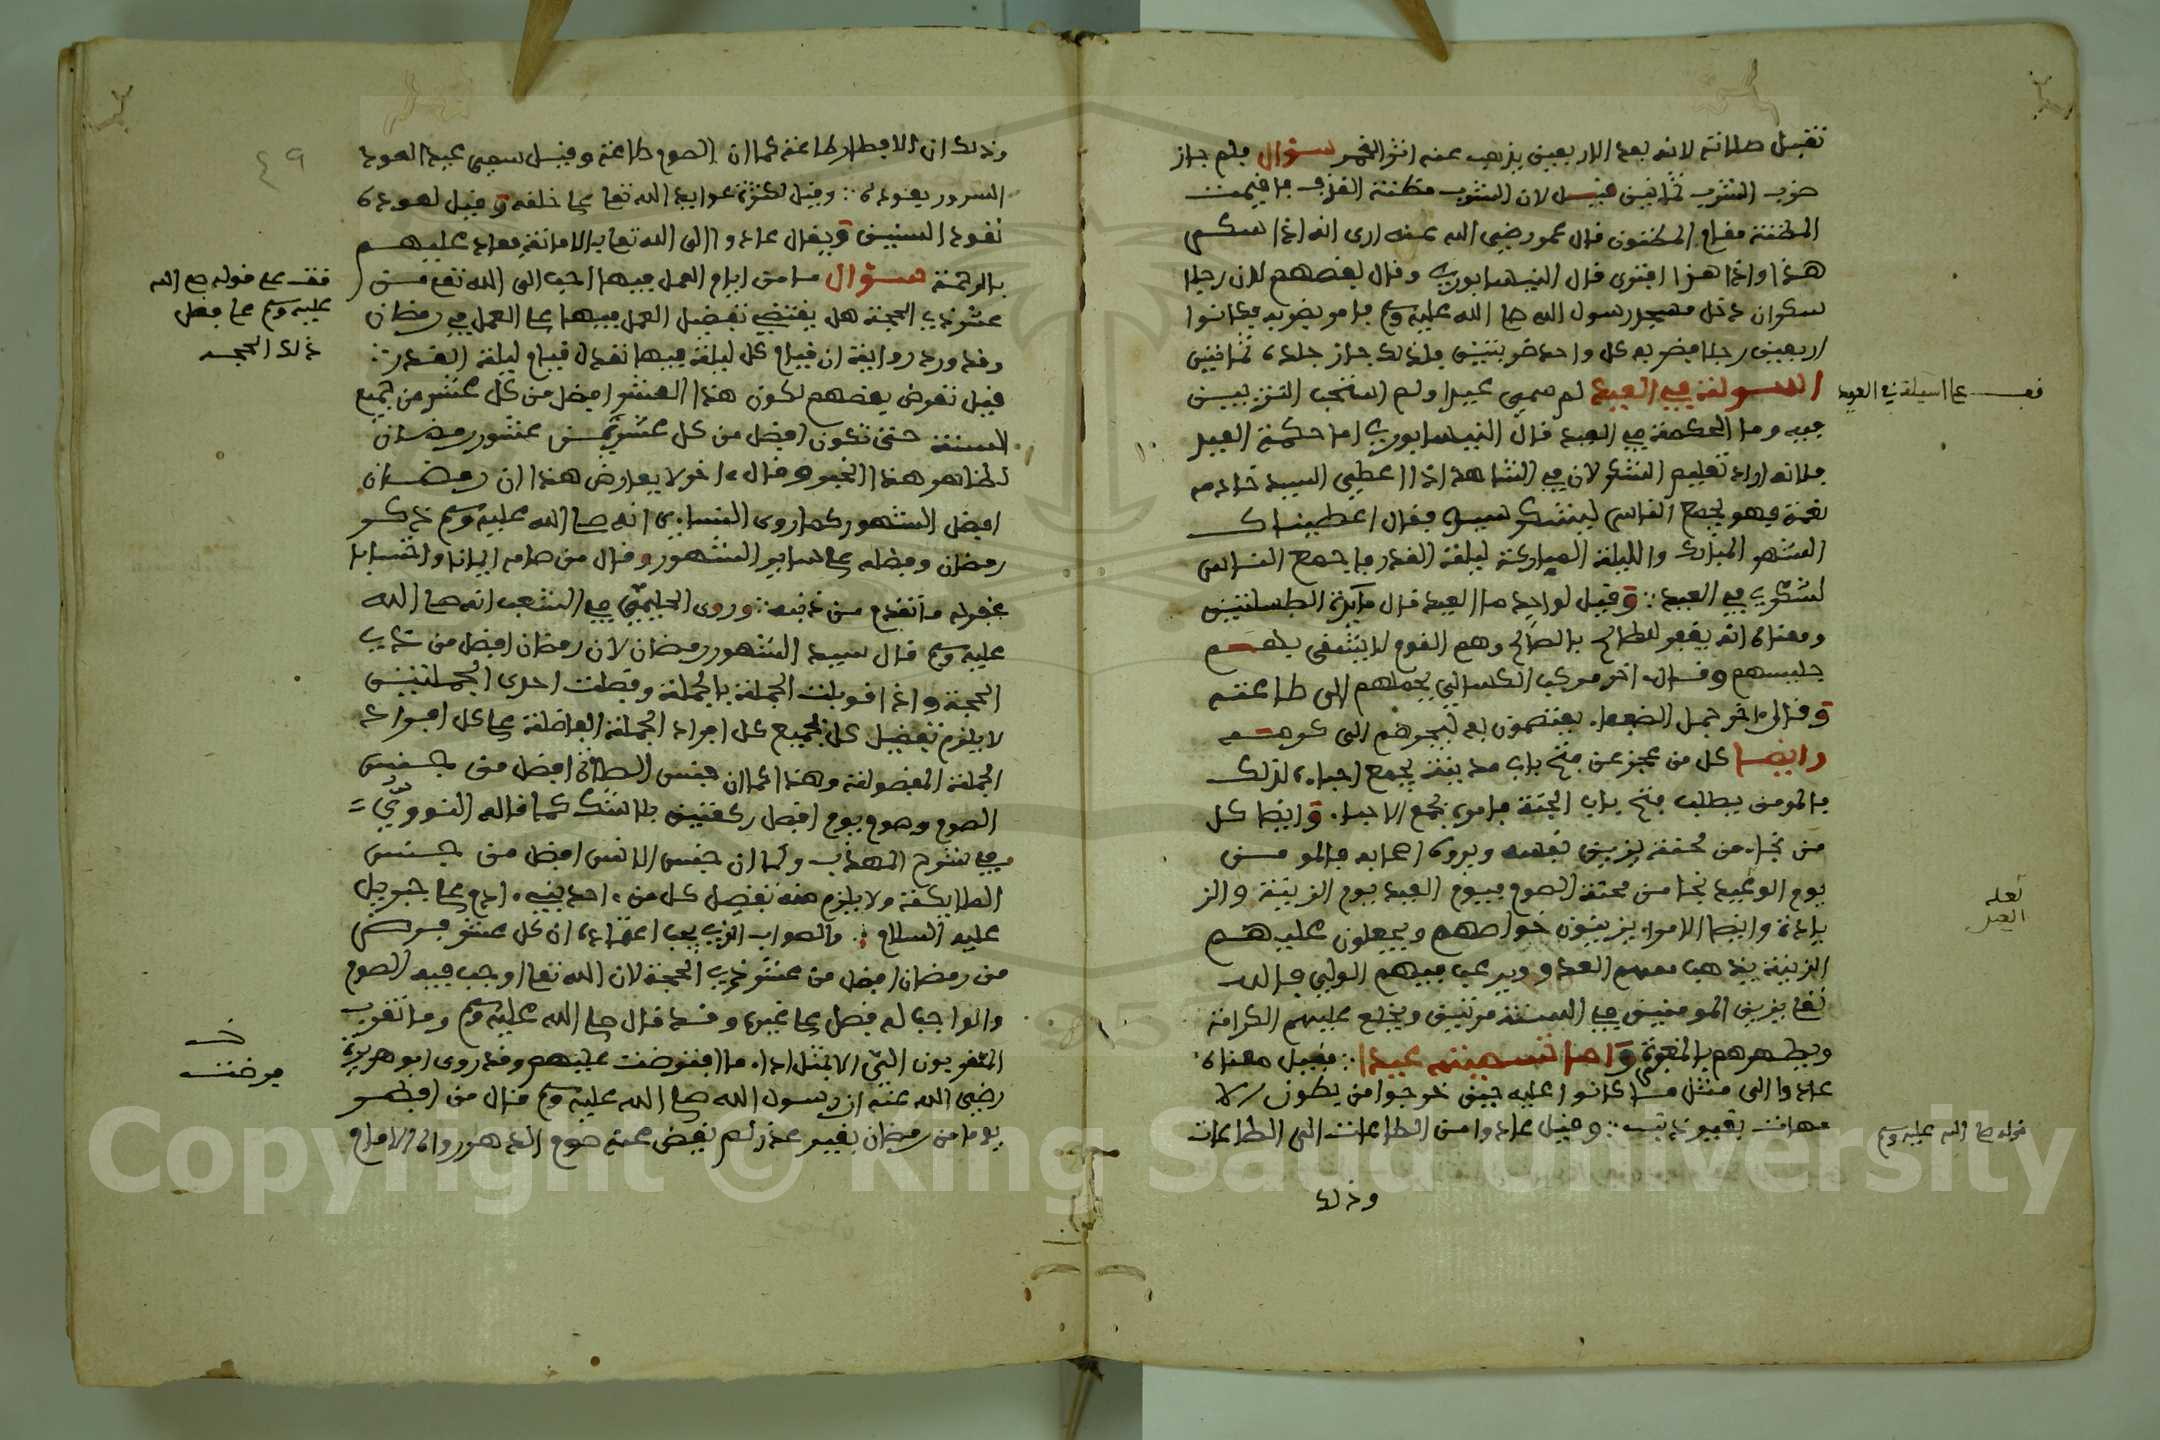 تقبل صلاته لانه بعد الاربعين يذهب عنه اثر الخمر سؤال فلم جاز
ضرب الشرب ثمانين قيل لان الشرب مظنة القذف فاقيمت
المظنة مقام المظنون قال عمر رضي الله عنه ارى انه اذا سكر
هذا واذا هذا افترى قال النيسابوري وقال بعضهم لان رجلا
سكران دخل مسجد رسول الله صلى الله عليه وسلم فامر بضربه فكانوا
اربعين رجلا فضربه كل واحد ضربتين فلذلك جاز جلده ثمانين
اسولة في العيد لم سمي عيدا ولم استحب التزيين
فيه وما الحكمة في العيد قال النيسابوري اما حكمة العيد
فلانه اراد تعليم الشكر لان في الشاهد اذا اعطى السيد خادمه
نعمة فهو يجمع الناس ليشكر سيده فقال اعطيناك
الشهر المبارك والليلة المباركة ليلة القدر فاجمع الناس
لشكري في العيد وقيل لواحد ما العيد قال مايدة الطسلتين
ومعناه انه يغفر للطالح بالصالح وهم القوم لا يشقى بهم
جليسهم وقال اخر مركب الكسالى يحملهم الى طاعته
وقال اخر حبل الضعفاء يعتصمون به ليجرهم الى كرمه
وايضا كل من عجز عن فتح باب مدينة يجمع احباءه لذلك
فالمومن يطلب فتح باب الجنة فامره بجمع الاحباء وايضا كل
من نجاه من محنة يزين نفسه ويروه اصحابه فالمومن
يوم الوعيد نجا من محنة الصوم فيوم العيد يوم الزينة والز
يادة وايضا الامراء يزينون خواصهم ويجعلون عليهم
الزينة يذهب معهم العدو ويرغب فيهم الولي فالله
تعا يزين المومنين في السنة مرتين ويخلع عليهم الكرامة
ويطهرهم بالمغفرة واما تسميته عيدا فقيل معناه
عادوا الى مثل ما كانوا عليه حين خرجوا من بطون الا
مهات بغير ذنب وقيل عادوا من الطاعات الى الطاعات
وذلك
قف على اسيلة في العيد
لعله
العبد
قوله صلى الله عليه وسلم
٤٩
وذلك ان الافطار طاعة كما ان الصوم طاعة وقيل سمي عيد العود
السرور بعوده وقيل لكثرة عوايد الله تعا على خلقه وقيل لعوده
بعود السنين ويقال عادوا الى الله تعا بالامانة فعاد عليهم
بالرحمة سؤال ما من ايام العمل فيها احب الى الله تعا من
عشر ذي الحجة هل يقتضي تفضيل العمل فيها على العمل في رمضان
وقد ورد رواية ان قيام كل ليلة فيها تعدل قيام ليلة القدر
قيل تعرض بعضهم لكون هذا العشر افضل من كل عشر من جميع
السنة حتى تكون افضل من كل عشر من عشور رمضان
لظاهر هذا الخبر وقال اخر لا يعارض هذا ان رمضان
افضل الشهور كما روى النساءي انه صلى الله عليه وسلم ذكر
رمضان وفضله على سابر الشهور وقال من صامه ايمانا واحتسابا
غفر له ما تقدم من ذنبه وروى الحليمي في الشعب انه صلى الله
عليه وسلم قال سيد الشهور رمضان لان رمضان افضل من ذي
الحجة واذا قوبلت الجملة بالجملة وفضلت احدى الجملتين
لا يلزم تفضيل كل جميع كل افراد الجملة الفاضلة على كل افراد
الجملة المفضولة وهذا كما ان جنس الصلاة افضل من جنس
الصوم وصوم يوم افضل ركعتين بلا شك كما قاله النووي
في شرح المهذب وكما ان جنس الانس افضل من جنس
الملايكة ولا يلزم منه تفضيل كل من احد بنيء ادم على جبريل
عليه السلام والصواب الذي يجب اعتقاده ان كل عشر فرض
من رمضان افضل من عشر ذي الحجة لان الله تعا اوجب فيه الصوم
والواجب له فضل على غيره وقد قال صلى الله عليه وسلم وما تقرب
المتقربون الي الا بمثل اداء ما افترضت عليهم وقد روى ابو هريرة
رضي الله عنه ان رسول الله صلى الله عليه وسلم قال من افطر
يوما من رمضان بغير عذر لم يقض عنه صوم الدهر والامام
قف على قوله صلى الله
عليه وسلم على فضل
ذي الحجة
فرضت
Copyright © King Saud University